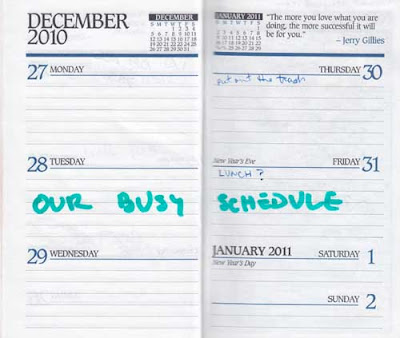 DECEMBER
2010
DECEMBER
S M T W T F S
1 2 3 4
5 6 7 8 9 10 11
12 13 14 15 16 17 18
19 20 21 22 23 24 25
26 27 28 29 30 31
27 MONDAY
28 TUESDAY
29 WEDNESDAY
JANUARY 2011
S M T W T F S
"The more you love what you are
doing, the more successful it will
be for you."
– Jerry Gillies
THURSDAY 30
put out the trash
New Year's Eve
FRIDAY 31
LUNCH?
OUR BUSY SCHEDULE
JANUARY 2011
SATURDAY 1
New Year's Day
SUNDAY 2